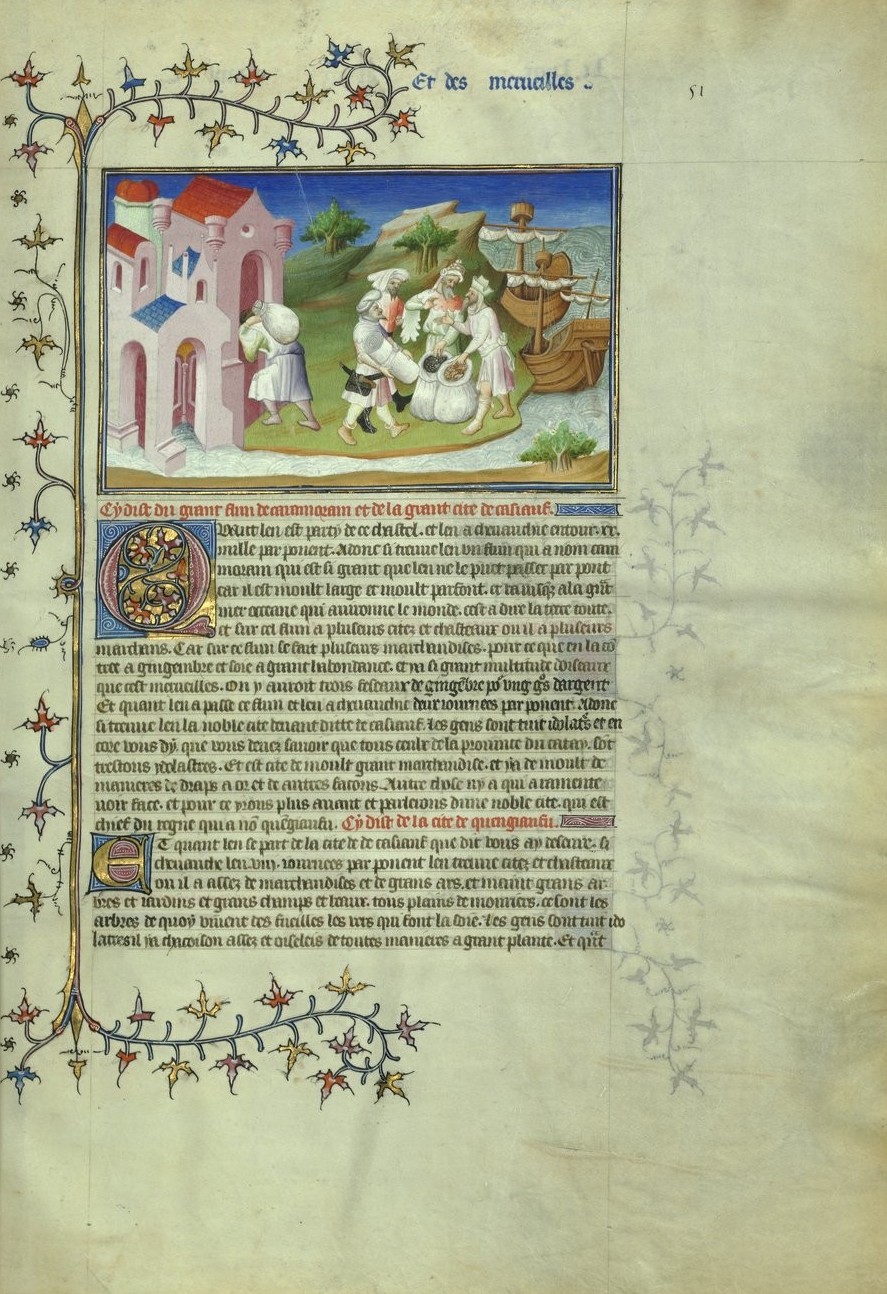 Et des merueilles.
51
Cy dist du grant flun de caramoram et de la grant cite de casianf.
Quant len est party de ce chastel. et len a cheuauchie entour .xx.
mille par ponent. Adonc si treuue len vn flun qui a nom cara
moram qui est si grant que len ne le puet passer par pont
car il est moult large et moult parfont. et va iusques a la grant
mer occeane qui auironne le monde. cest a dire la terre toute.
et sur cel flun a pluseurs citez et chasteaux ou il a pluseurs
marchans. Car sur ce flun se fait pluseurs marchandises. pour ce que en la con
tree a gingembre et soie a grant labondance. et y a si grant multitude doiseaux
que cest merueilles. On y auroit trois feseaux de gingembre pour vng gros dargent
Et quant len a passe ce flun et len a cheuauchie deux iournees par ponent. Adonc
si treuue len la noble cite deuant ditte de casianf. Les gens sont tuit idolatres et en
core vous dy. que vous deuez sauoir que tous ceulx de la prouince du catay. sont
trestous ydolastres. Et est cite de moult grant marchandise. et y a de moult de
manieres de draps a or et de autres facons. Autre chose ny a qui a ramente
uoir face. et pour ce yrons plus auant et parlerons dune noble cite. qui est
chief du regne qui a non quengianfu. Cy dist de la cite de quengianfu.
Et quant len se part de la cite de de casianf que dit vous ay desseure. si
cheuauche len .viij. iournees par ponent len treuue citez et chasteaux
ou il a assez de marchandises et de grans ars. et maint grans ar
bres et iardins et grans champs et beaux. tous plains de moriers. ce sont les
arbres de quoy viuent des fueilles les vers qui font la soie. Les gens sont tuit ido
latres il y a chacoison assez et oiselets de toutes manieres a grant plante. Et quant